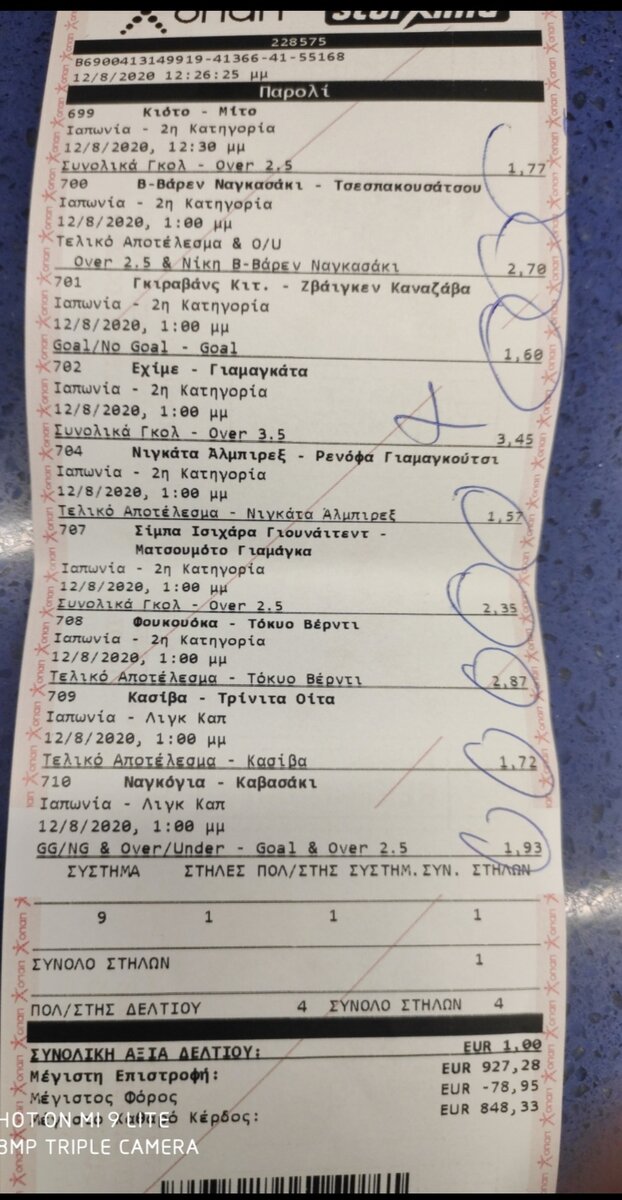 οπαπ Stoixima
228575
B6900413149919-41366-41-55168
12/8/2020 12:26:25 μμ
Παρολί
699 Κιότο - Μίτο
Ιαπωνία - 2η Κατηγορία
12/8/2020, 12:30 μμ
Συνολικά Γκολ - Over 2.5 1,77
700 Β-Βάρεν Ναγκασάκι - Τσεσπακουσάτσου
Ιαπωνία - 2η Κατηγορία
12/8/2020, 1:00 μμ
Τελικό Αποτέλεσμα & O/U
Over 2.5 & Νίκη Β-Βάρεν Ναγκασάκι 2,70
701 Γκιραβάνς Κιτ. - Ζβάιγκεν Καναζάβα
Ιαπωνία - 2η Κατηγορία
12/8/2020, 1:00 μμ
Goal/No Goal - Goal 1,60
702 Εχίμε - Γιαμαγκάτα
Ιαπωνία - 2η Κατηγορία
12/8/2020, 1:00 μμ
Συνολικά Γκολ - Over 3.5 3,45
704 Νιγκάτα Άλμπιρεξ - Ρενόφα Γιαμαγκούτσι
Ιαπωνία - 2η Κατηγορία
12/8/2020, 1:00 μμ
Τελικό Αποτέλεσμα - Νιγκάτα Άλμπιρεξ 1,57
707 Σίμπα Ισιχάρα Γιουνάιτεντ -
Ματσουμότο Γιαμάγκα
Ιαπωνία - 2η Κατηγορία
12/8/2020, 1:00 μμ
Συνολικά Γκολ - Over 2.5 2,35
708 Φουκουόκα - Τόκυο Βέρντι
Ιαπωνία - 2η Κατηγορία
12/8/2020, 1:00 μμ
Τελικό Αποτέλεσμα - Τόκυο Βέρντι 2,87
709 Κασίβα - Τρίνιτα Οίτα
Ιαπωνία - Λιγκ Καπ
12/8/2020, 1:00 μμ
Τελικό Αποτέλεσμα - Κασίβα 1,72
710 Ναγκόγια - Καβασάκι
Ιαπωνία - Λιγκ Καπ
12/8/2020, 1:00 μμ
GG/NG & Over/Under - Goal & Over 2.5 1,93
ΣΥΣΤΗΜΑ ΣΤΗΛΕΣ ΠΟΛ/ΣΤΗΣ ΣΥΣΤΗΜ. ΣΥΝ. ΣΤΗΛΩΝ
9 1 1 1
ΣΥΝΟΛΟ ΣΤΗΛΩΝ 1
ΠΟΛ/ΣΤΗΣ ΔΕΛΤΙΟΥ 4 ΣΥΝΟΛΟ ΣΤΗΛΩΝ 4
ΣΥΝΟΛΙΚΗ ΑΞΙΑ ΔΕΛΤΙΟΥ: EUR 1,00
Μέγιστη Επιστροφή: EUR 927,28
Μέγιστος Φόρος EUR -78,95
Κέρδος: EUR 848,33
HOT ON MI 9 LITE
8MP TRIPLE CAMERA